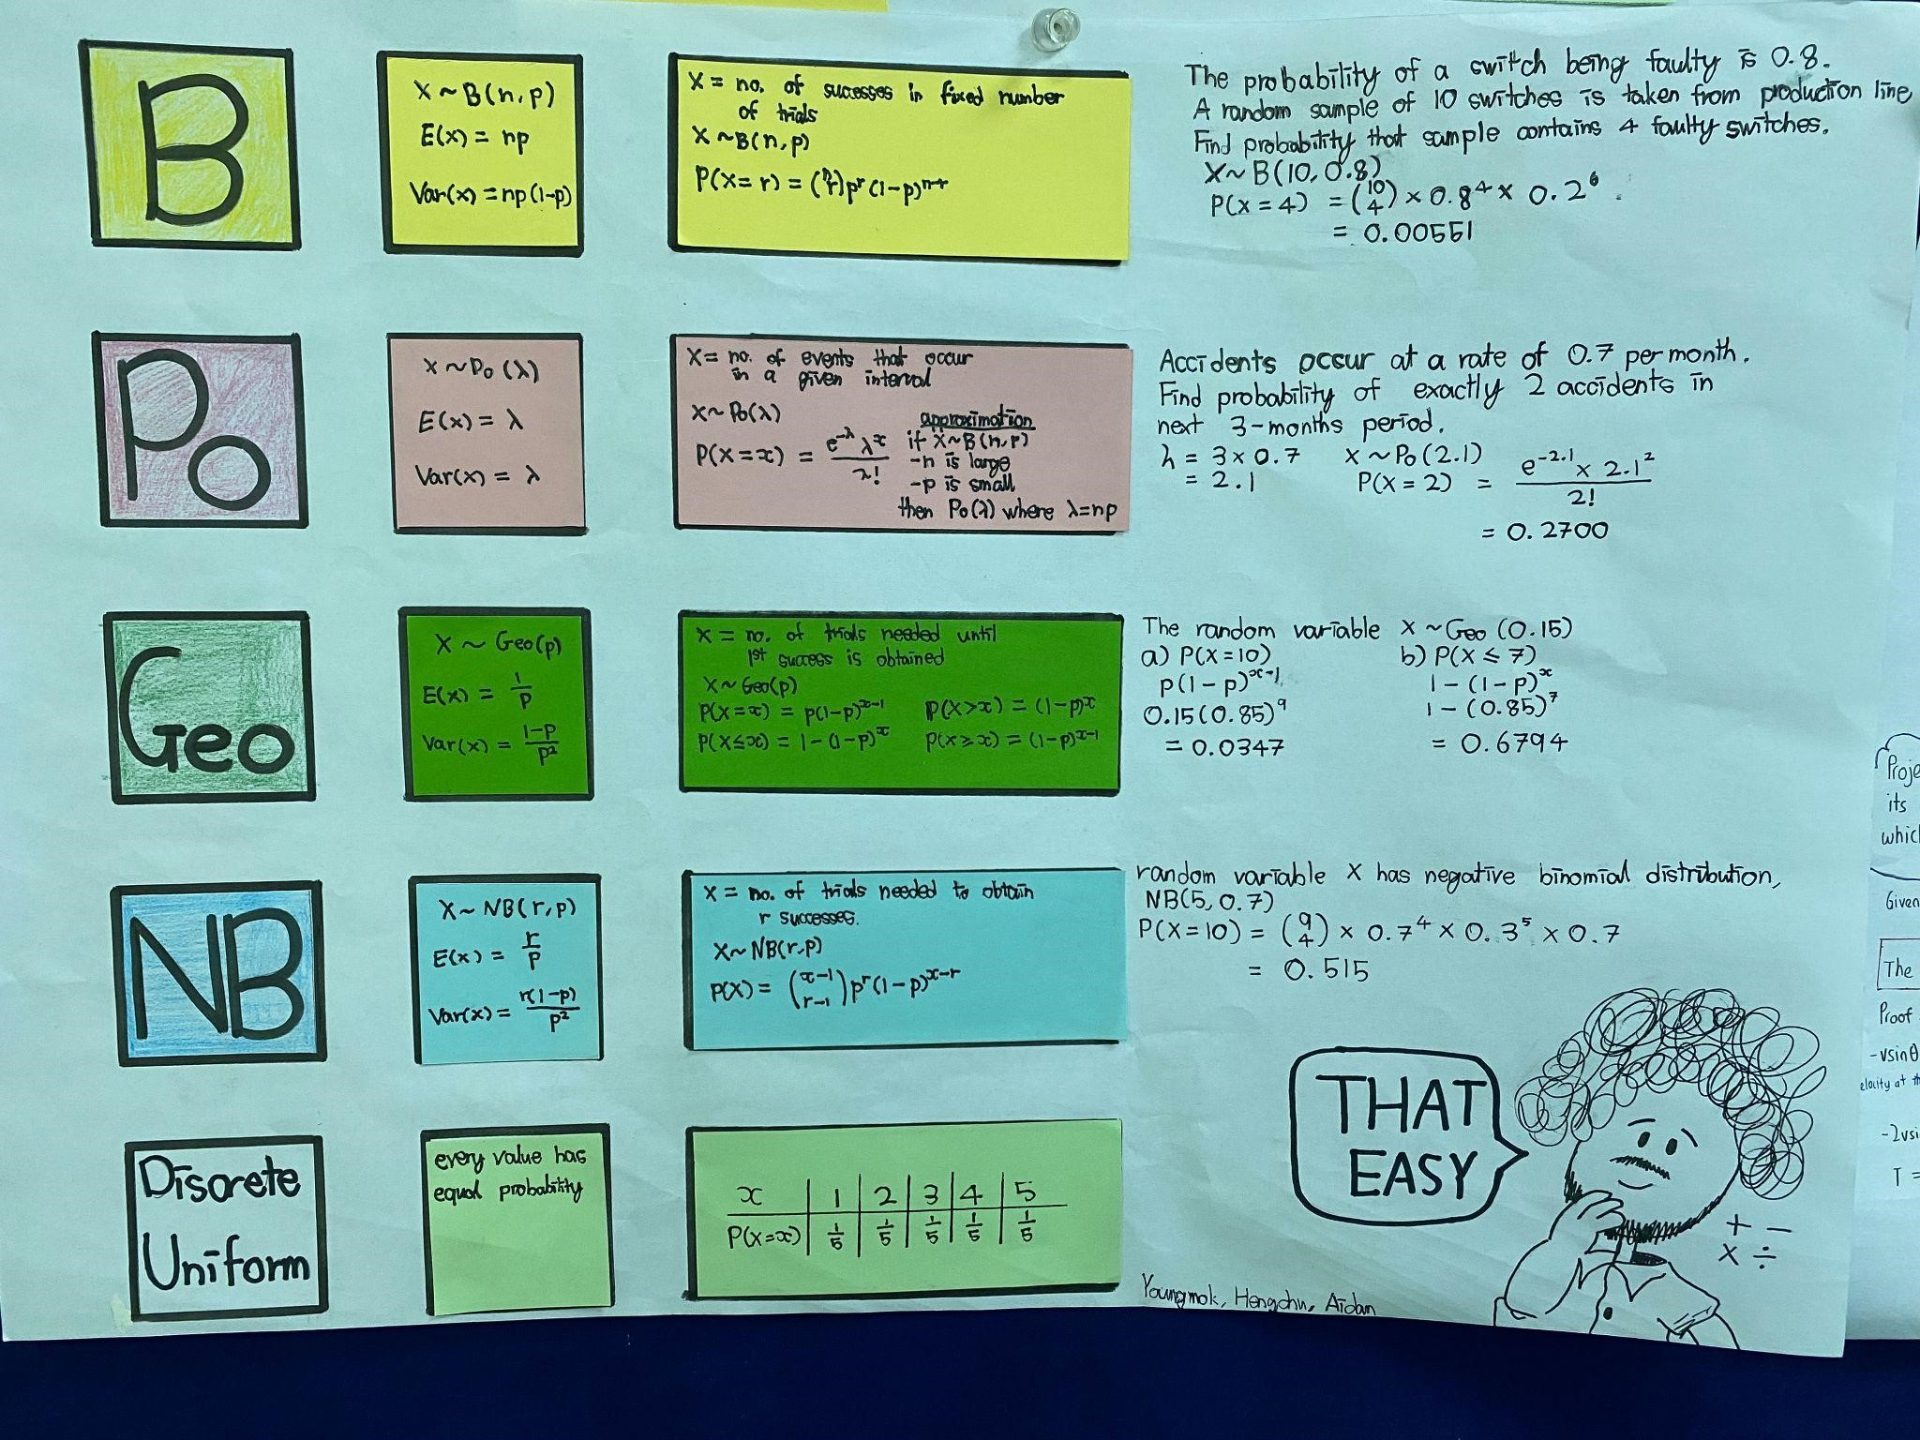 B
X ~ B(n,p)
E(x) = np
Var(x) = np(1-p)
X = no. of successes in fixed number
of trials
X ~ B(n,p)
P(X = r) = (n r) p^r (1-p)^n-r
The probability of a switch being faulty is 0.8.
A random sample of 10 switches is taken from production line
Find probability that sample contains 4 faulty switches.
X ~ B(10, 0.8)
P(X = 4) = (10 4) × 0.8^4 × 0.2^6
= 0.00551
Po
X ~ Po (λ)
E(x) = λ
Var(x) = λ
X = no. of events that occur
in a given interval
X ~ Po(λ)
P(X = x) = e^-λ λ^x / x!
approximation
if X~B(n,p)
-n is large
-p is small
then Po(λ) where λ=np
Accidents occur at a rate of 0.7 per month.
Find probability of exactly 2 accidents in
next 3-months period.
λ = 3 × 0.7 X ~ Po (2.1)
= 2.1 P(X = 2) = e^-2.1 × 2.1^2 / 2!
= 0.2700
Geo
X ~ Geo(p)
E(x) = 1/p
Var(x) = 1-p/p^2
X = no. of trials needed until
1st success is obtained
X ~ Geo(p)
P(X = x) = p(1-p)^x-1 P(X>x) = (1-p)^x
P(X≤x) = 1-(1-p)^x P(X≥x) = (1-p)^x-1
The random variable X ~ Geo (0.15)
a) P(X=10) b) P(X ≤ 7)
p(1-p)^x-1 1-(1-p)^x
0.15(0.85)^9 1-(0.85)^7
= 0.0347 = 0.6794
NB
X ~ NB(r,p)
E(x) = r/p
Var(x) = r(1-p)/p^2
X = no. of trials needed to obtain
r successes.
X ~ NB(r,p)
P(X) = (x-1 r-1) p^r (1-p)^x-r
random variable X has negative binomial distribution,
NB(5, 0.7)
P(X = 10) = (9 4) × 0.7^4 × 0.3^5 × 0.7
= 0.515
Discrete
Uniform
every value has
equal probability
x 1 2 3 4 5
P(X=x) 1/5 1/5 1/5 1/5 1/5
THAT
EASY
+ −
× ÷
Youngmok, Hengchu, Aidan
Proje
its
which
Given
The
Proof
-vsinθ
elocity at th
-2vsi
T =